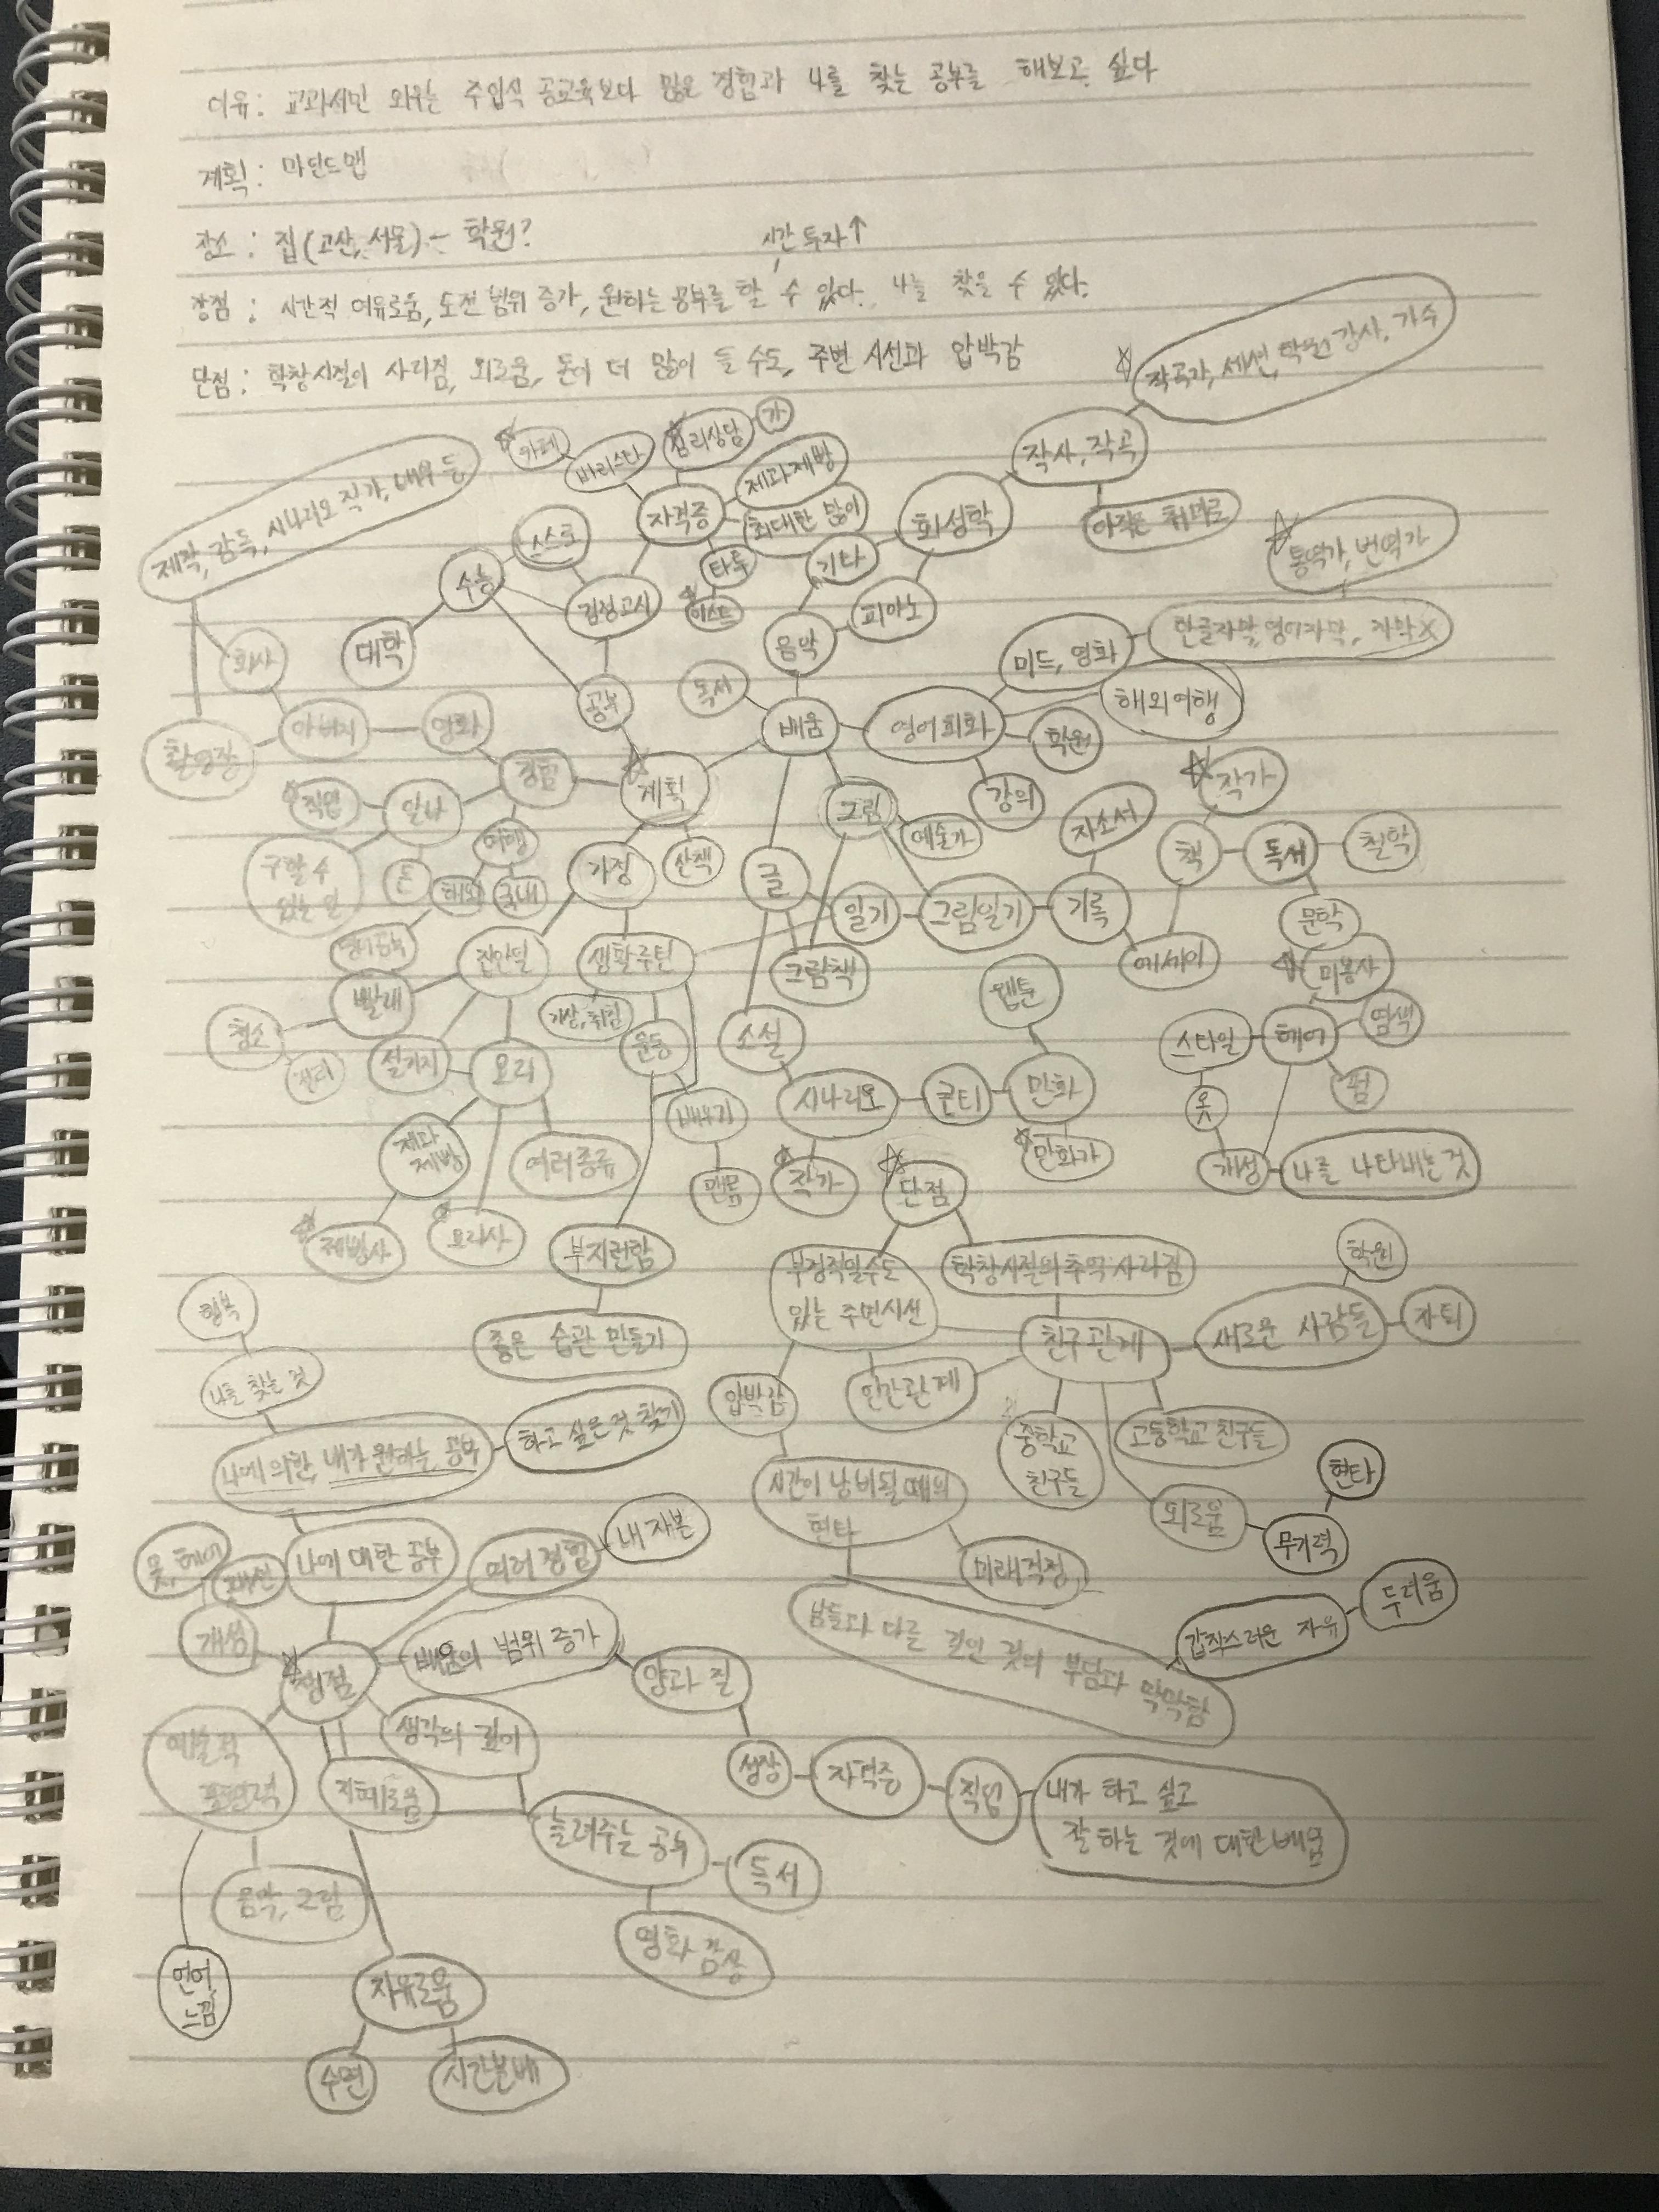 이유: 교과서만 외우는 주입식 공교육보다 많은 경험과 나를 찾는 공부를 해보고 싶다
계획: 마인드맵
장소: 집(고산, 서울) - 학원?
시간 투자↑
장점: 시간적 여유로움, 도전 범위 증가, 원하는 공부를 할 수 있다. 나를 찾을 수 있다.
단점: 학창시절이 사라짐, 외로움, 돈이 더 많이 들 수도, 주변 시선과 압박감
작곡가, 세션, 학원 강사, 가수
카페
바리스타
심리상담
가
제과제빵
작사, 작곡
제작, 감독, 시나리오 작가, 배우 등
스스로
자격증
최대한 많이
화성학
아직은 취미로
통역가, 번역가
수능
검정고시
타투
이스트
기타
피아노
대학
음악
한글자막, 영어자막, 자막X
회사
미드, 영화
해외여행
독서
공부
배움
영어회화
학원
촬영장
아버지
영화
경험
계획
강의
작가
직업
알바
여행
그림
예술가
자소서
책
독서
철학
구할 수
있는 일
돈
해외
국내
가정
산책
글
일기
그림일기
기록
문학
영어공부
집안일
생활루틴
그림책
에세이
미용사
빨래
기상, 취침
웹툰
염색
청소
설거지
요리
운동
소설
스타일
헤어
펌
시나리오
콘티
만화
옷
배우기
제과
제빵
여러 종류
작가
만화가
개성
나를 나타내는 것
단점
제빵사
요리사
부지런함
부정적일수도
있는 주변시선
학창시절의 추억 사라짐
학원
행복
좋은 습관 만들기
친구관계
새로운 사람들
자퇴
나를 찾는 것
압박감
인간관계
나에 의한, 내가 원하는 공부
하고 싶은것 찾기
중학교
친구들
고등학교 친구들
시간이 낭비될 때의
현타
외로움
현타
무기력
내 자본
옷, 헤어
패션
나에 대한 공부
여러 경험
미래걱정
개성
배움의 범위 증가
남들과 다른 길인 것의 부담과 막막함
갑작스러운 자유
두려움
장점
양과 질
예술적
표현력
생각의 깊이
지혜로움
성장
자격증
직업
내가 하고 싶고
잘 하는 것에 대한 배움
늘려주는 공부
독서
음악, 그림
영화 감상
언어
느낌
자유로움
수면
시간분배